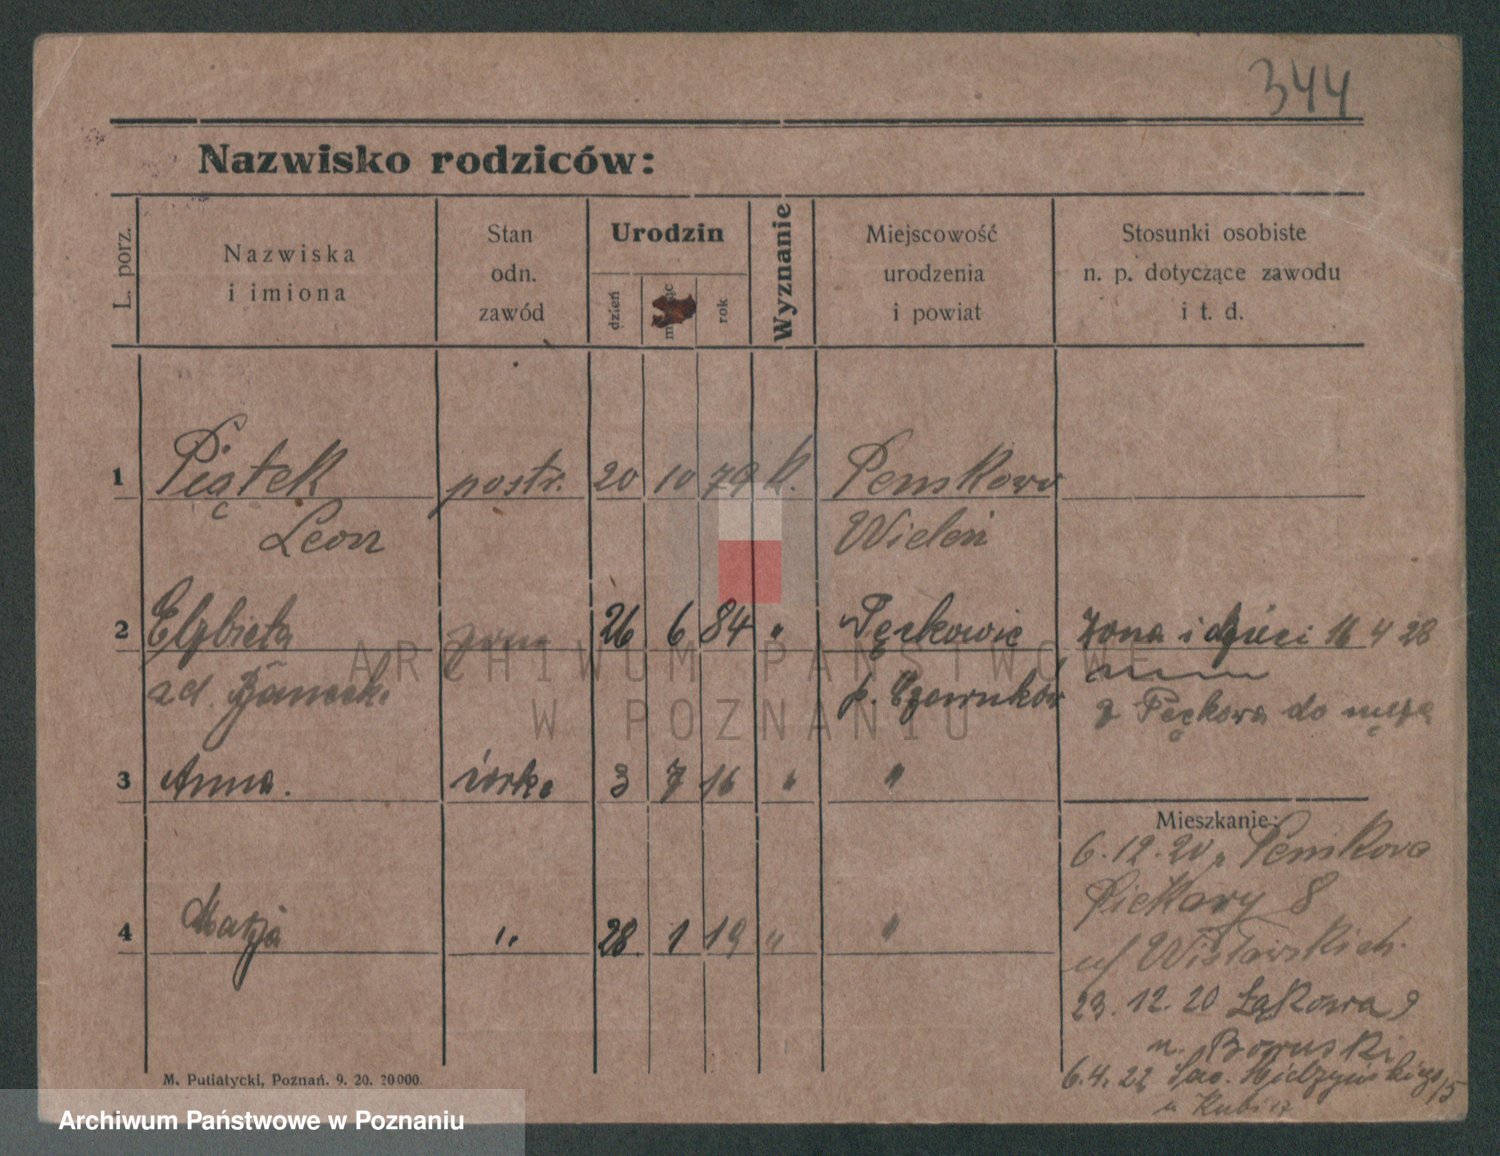 344
Nazwisko rodziców:
L. porz.
Nazwiska
i imiona
Stan
odn.
zawód
Urodzin
dzień
rok
Wyznanie
Miejscowość
urodzenia
i powiat
Stosunki osobiste
n. p. dotyczące zawodu
i t. d.
1 Piątek postr. 20 10 79 k. Penskowo
Leon Wieleń
2 Elżbieta żona 26 6 84 " żona i dzieci 16 4 28
zd. p. Czarnków
z do męża
3 Anna. córka 3 7 16 " "
Mieszkanie:
6.12.20 z Penskowa
Piekary 8
4 Marja " 28 1 19 " "
23.12.20 Łąkowa 9
6.4.22 Mielżyńskiego
M. Putiatycki, Poznań. 9. 20. 20000.
ARCHIWUM PAŃSTWOWE
W POZNANIU
Archiwum Państwowe w Poznaniu